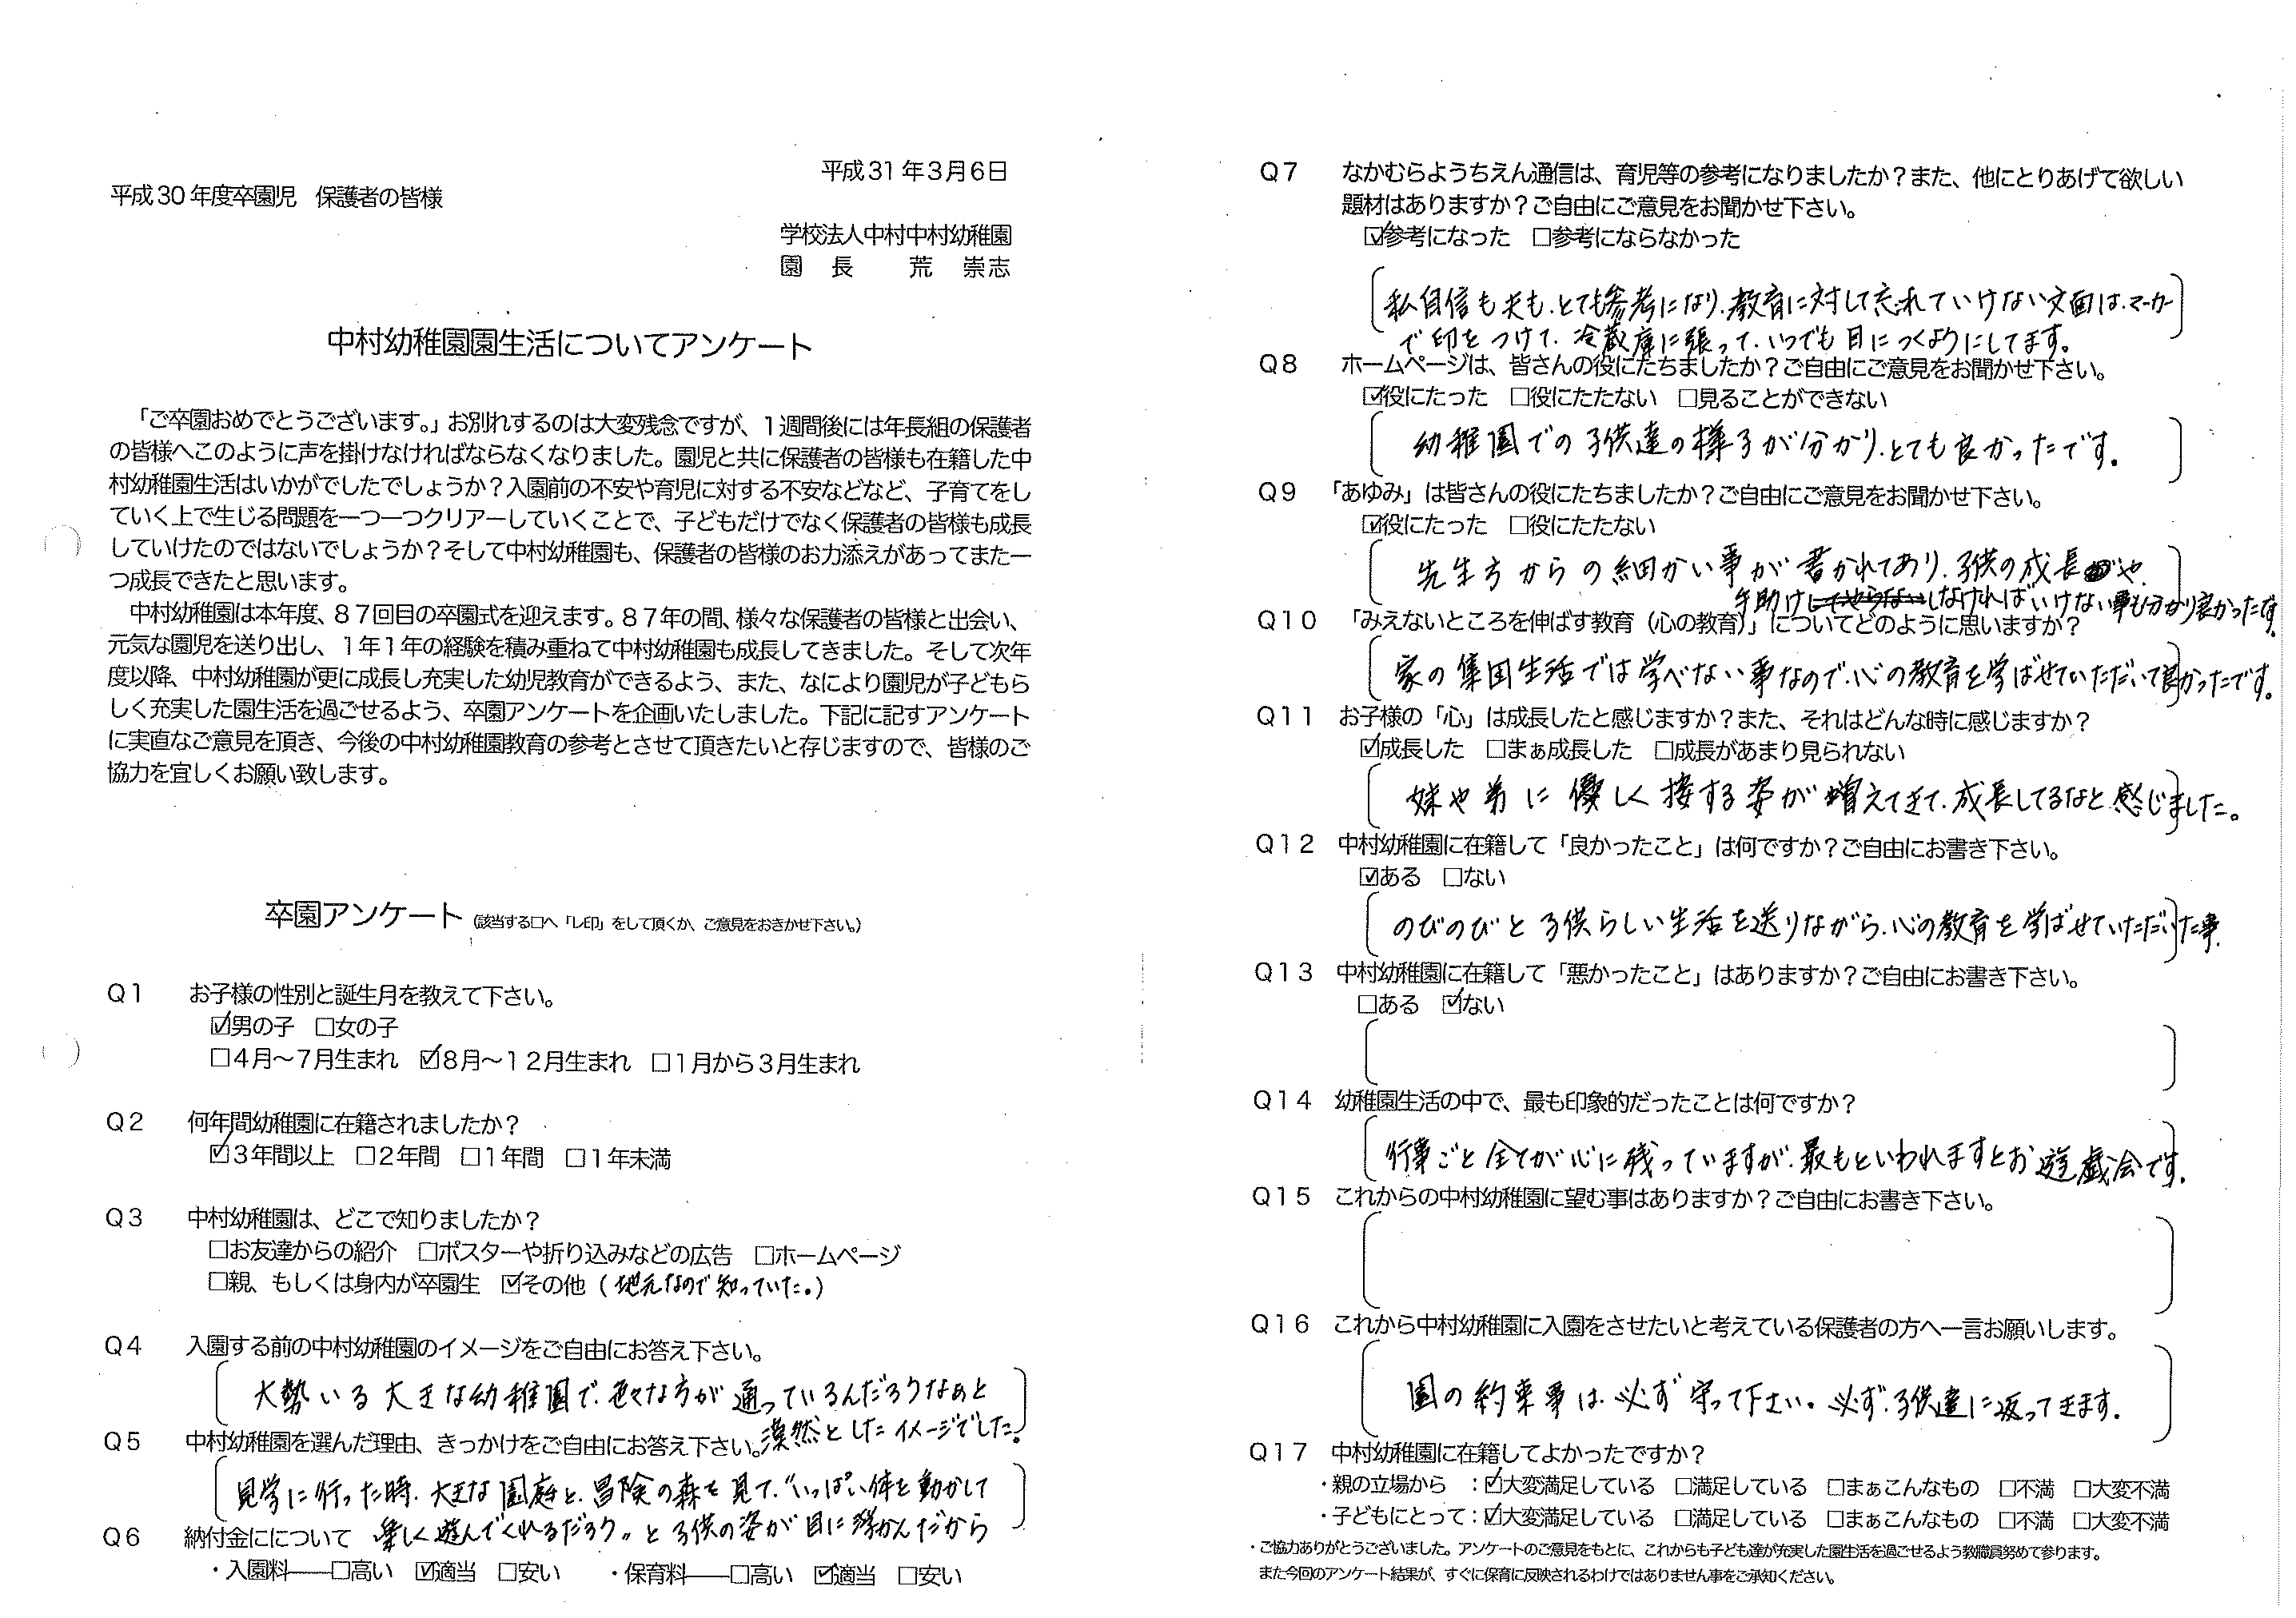 平成31年3月6日
平成30年度卒園児　保護者の皆様
学校法人中村中村幼稚園
園　長　　荒　崇志
中村幼稚園園生活についてアンケート
「ご卒園おめでとうございます。」お別れするのは大変残念ですが、1週間後には年長組の保護者
の皆様へこのように声を掛けなければならなくなりました。園児と共に保護者の皆様も在籍した中
村幼稚園生活はいかがでしたでしょうか？入園前の不安や育児に対する不安などなど、子育てをし
ていく上で生じる問題を一つ一つクリアーしていくことで、子どもだけでなく保護者の皆様も成長
していけたのではないでしょうか？そして中村幼稚園も、保護者の皆様のお力添えがあってまた一
つ成長できたと思います。
中村幼稚園は本年度、87回目の卒園式を迎えます。87年の間、様々な保護者の皆様と出会い、
元気な園児を送り出し、1年1年の経験を積み重ねて中村幼稚園も成長してきました。そして次年
度以降、中村幼稚園が更に成長し充実した幼児教育ができるよう、また、なにより園児が子どもら
しく充実した園生活を過ごせるよう、卒園アンケートを企画いたしました。下記に記すアンケート
に実直なご意見を頂き、今後の中村幼稚園教育の参考とさせて頂きたいと存じますので、皆様のご
協力を宜しくお願い致します。
卒園アンケート（該当する□へ「レ印」をして頂くか、ご意見をおきかせ下さい。）
Q1　お子様の性別と誕生月を教えて下さい。
☑男の子　□女の子
□4月～7月生まれ　☑8月～12月生まれ　□1月から3月生まれ
Q2　何年間幼稚園に在籍されましたか？
☑3年間以上　□2年間　□1年間　□1年未満
Q3　中村幼稚園は、どこで知りましたか？
□お友達からの紹介　□ポスターや折り込みなどの広告　□ホームページ
□親、もしくは身内が卒園生　☑その他（地元なので知っていた。）
Q4　入園する前の中村幼稚園のイメージをご自由にお答え下さい。
大勢いる大きな幼稚園で、色々な方が通っているんだろうなぁと
漠然としたイメージでした。
Q5　中村幼稚園を選んだ理由、きっかけをご自由にお答え下さい。
見学に行った時、大きな園庭と、冒険の森を見て、“いっぱい体を動かして
楽しく遊んでくれるだろう”と子供の姿が目に浮かんだから
Q6　納付金にについて
・入園料――□高い　☑適当　□安い　・保育料――□高い　☑適当　□安い
Q7　なかむらようちえん通信は、育児等の参考になりましたか？また、他にとりあげて欲しい
題材はありますか？ご自由にご意見をお聞かせ下さい。
☑参考になった　□参考にならなかった
私自信も夫も、とても参考になり、教育に対して忘れていけない文面は、マーカー
で印をつけて、冷蔵庫に張って、いつでも目につくようにしてます。
Q8　ホームページは、皆さんの役にたちましたか？ご自由にご意見をお聞かせ下さい。
☑役にたった　□役にたたない　□見ることができない
幼稚園での子供達の様子が分かり、とても良かったです。
Q9　「あゆみ」は皆さんの役にたちましたか？ご自由にご意見をお聞かせ下さい。
☑役にたった　□役にたたない
先生方からの細かい事が書かれてあり、子供の成長や、
手助けしなければいけない事も分かり良かったです。
Q10　「みえないところを伸ばす教育（心の教育）」についてどのように思いますか？
家の集団生活では学べない事なので、心の教育を学ばせていただいて良かったです。
Q11　お子様の「心」は成長したと感じますか？また、それはどんな時に感じますか？
☑成長した　□まぁ成長した　□成長があまり見られない
妹や弟に優しく接する姿が増えてきて、成長してるなと感じました。
Q12　中村幼稚園に在籍して「良かったこと」は何ですか？ご自由にお書き下さい。
☑ある　□ない
のびのびと子供らしい生活を送りながら、心の教育を学ばせていただいた事。
Q13　中村幼稚園に在籍して「悪かったこと」はありますか？ご自由にお書き下さい。
□ある　☑ない
Q14　幼稚園生活の中で、最も印象的だったことは何ですか？
行事ごと全てが心に残っていますが、最もといわれますとお遊戯会です。
Q15　これからの中村幼稚園に望む事はありますか？ご自由にお書き下さい。
Q16　これから中村幼稚園に入園をさせたいと考えている保護者の方へ一言お願いします。
園の約束事は、必ず守って下さい。必ず、子供達に返ってきます。
Q17　中村幼稚園に在籍してよかったですか？
・親の立場から　：☑大変満足している　□満足している　□まぁこんなもの　□不満　□大変不満
・子どもにとって：☑大変満足している　□満足している　□まぁこんなもの　□不満　□大変不満
・ご協力ありがとうございました。アンケートのご意見をもとに、これからも子ども達が充実した園生活を過ごせるよう教職員努めて参ります。
また今回のアンケート結果が、すぐに保育に反映されるわけではありません事をご承知ください。